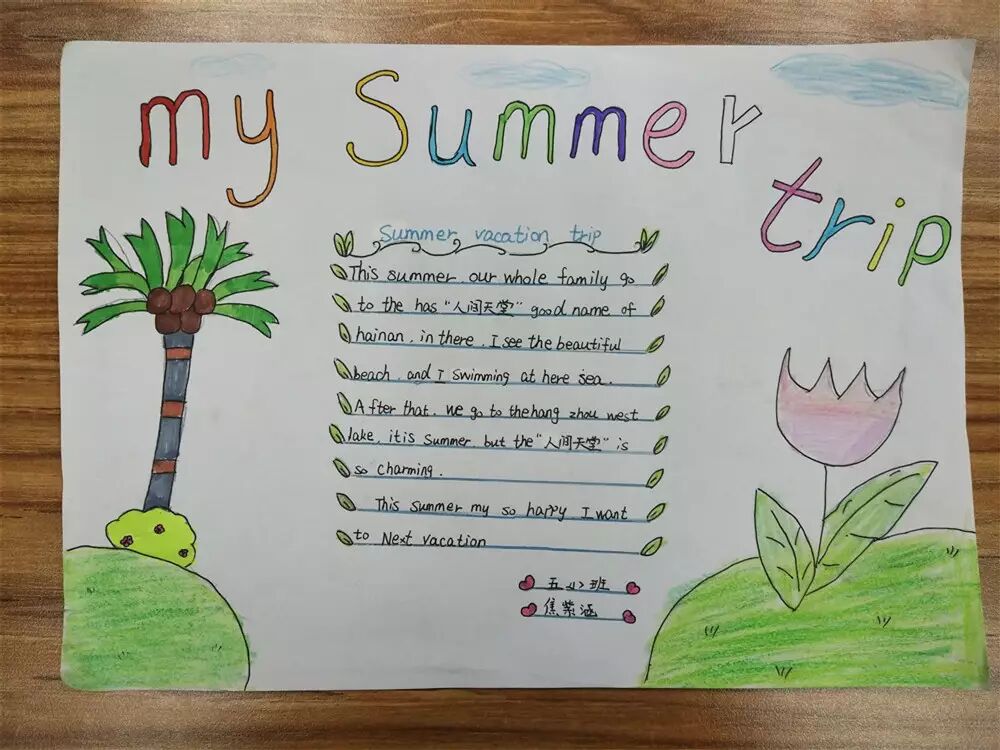 my Summer
trip
Summer vacation trip
This summer, our whole family go
to the has "人间天堂" good name of
hainan, in there, I see the beautiful
beach, and I swimming at here sea.
After that, we go to the hang zhou west
lake, it is summer, but the "人间天堂" is
so charming.
This summer my so happy I want
to Next vacation
五班
焦紫涵